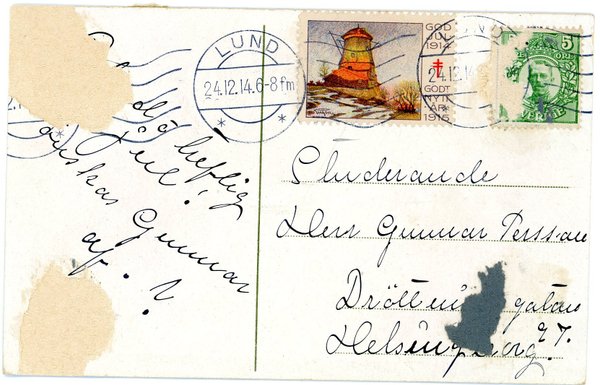 LUND
24.12.14.6-8 fm
GOD
JUL
1914
GODT
NYTT
ÅR
1915
5
ÖRE
heflig
Jul!
önskas Gunnar
af ?
Studerande
Herr Gunnar Persson
Drottninggatan
27.
Helsingborg